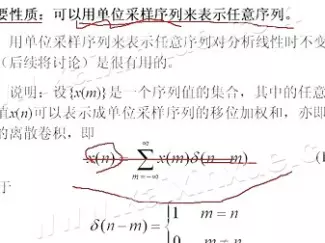 要性质：可以用单位采样序列来表示任意序列。
用单位采样序列来表示任意序列对分析线性时不变
（后续将讨论）是很有用的。
说明：设{x(m)}是一个序列值的集合，其中的任意
值x(n)可以表示成单位采样序列的移位加权和，亦即
的离散卷积，即
x(n) = ∑_{m=-∞}^{∞} x(m)δ(n-m) (1
于
δ(n-m) = {1 m=n
0 m≠n